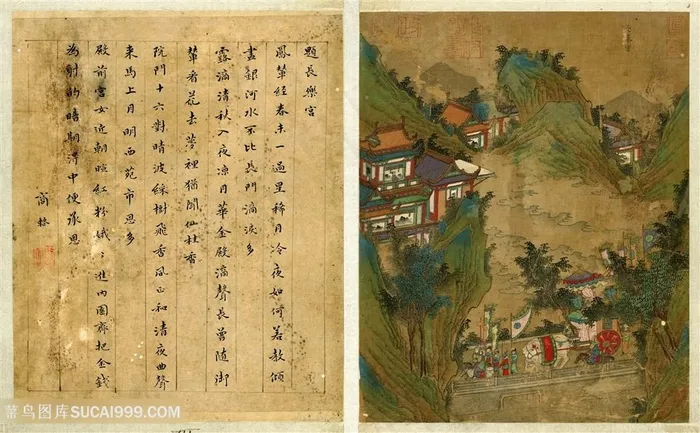 題長樂宮
鳳輦經春未一過星稀月冷夜如何若教傾
盡銀河水不比長門滴淚多
露滴清秋入夜涼月華金殿滴聲長曾隨御
輦看花去夢裡猶聞仙杖香
院門十六對晴波綠樹飛香風正和清夜曲聲
來馬上月明西苑市恩多
殿前宮女近朝暄紅粉娥〻進內園齊把金錢
為射的暗期中便承恩
高
菜鸟图库SUCAI999.COM